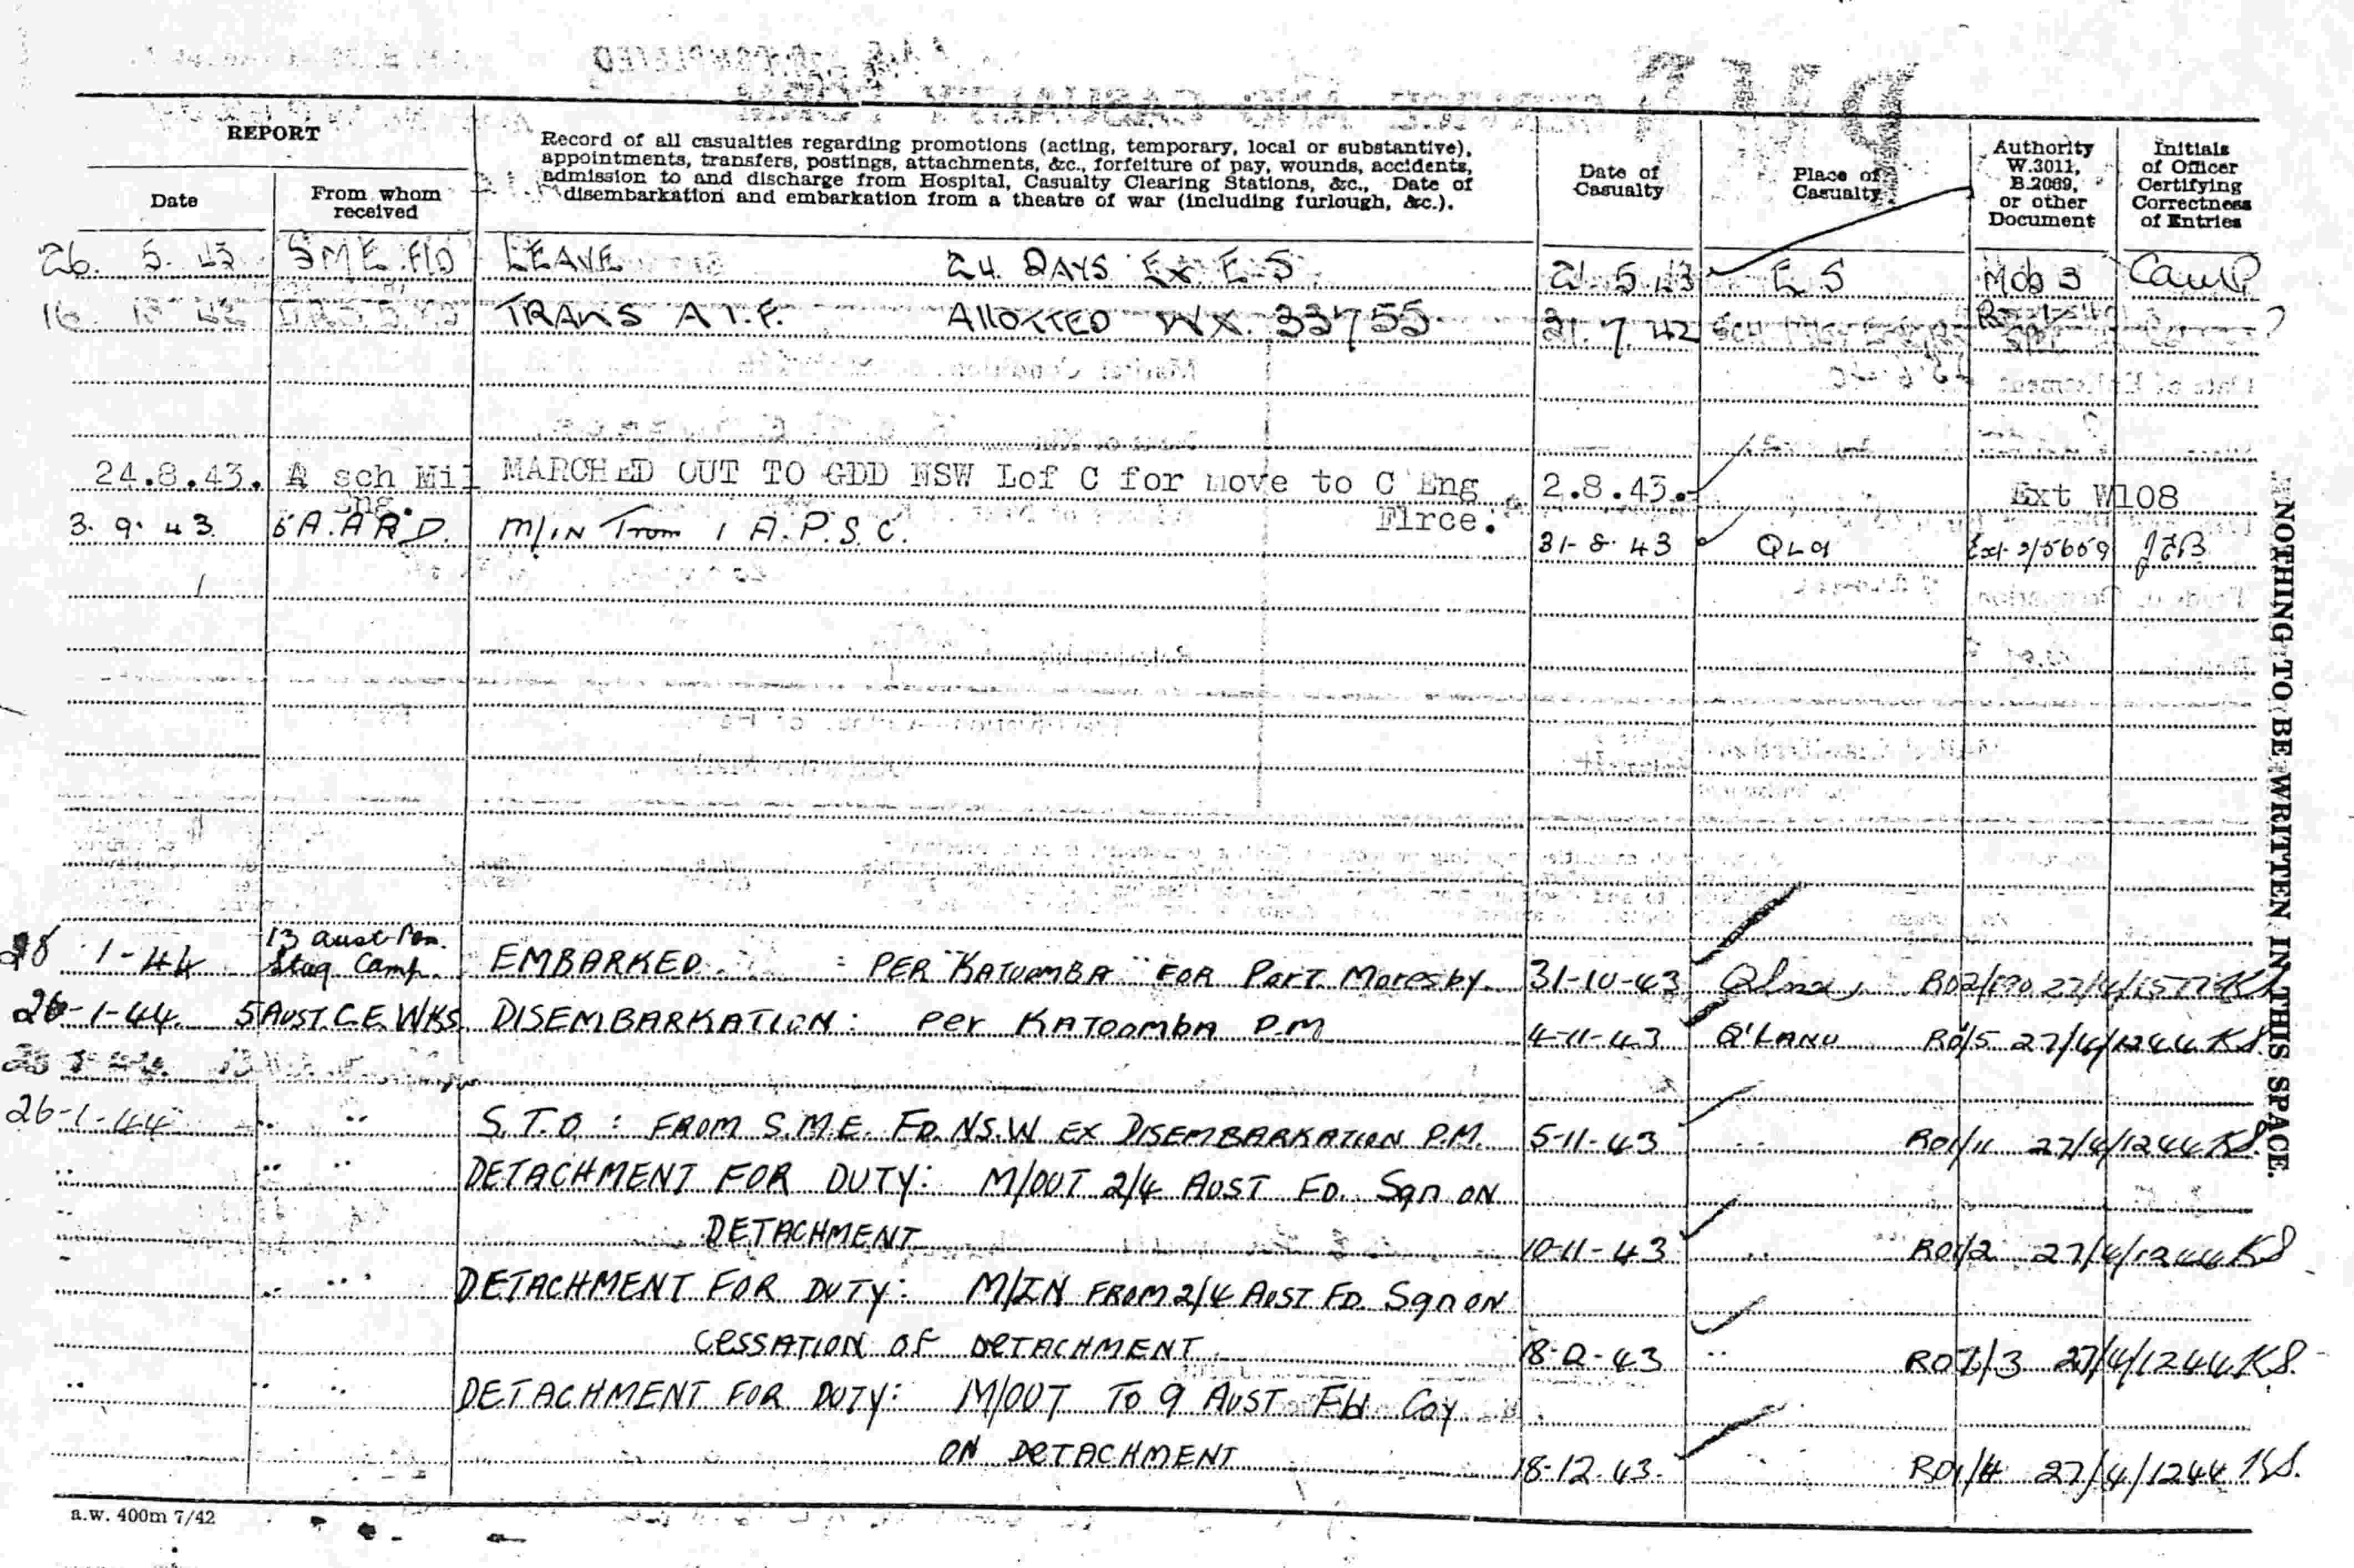 REPORT
Record of all casualties regarding promotions (acting, temporary, local or substantive),
appointments, transfers, postings, attachments, &c., forfeiture of pay, wounds, accidents,
admission to and discharge from Hospital, Casualty Clearing Stations, &c., Date of
disembarkation and embarkation from a theatre of war (including furlough, &c.).
Date of Casualty
Place of Casualty
Authority W.3011, B.2069, or other Document
Initials of Officer Certifying Correctness of Entries
Date
From whom received
26. 5. 43 SME FD LEAVE 24 DAYS Ex E S 21. 5. 43 E S Mob 3
TRANS A I.F. Allotted WX. 33755 31. 7. 42
24.8.43. A sch Mil MARCHED OUT TO GDD NSW Lof C for move to C Eng 2.8.43. Ext W108
Eng. Flrce.
3. 9. 43 5 A.A R.D. M/IN From 1 A.P.S.C. 31-8-43 QLd Ext 2/5659 JEB
13 Aust
28 1-44 Stag Camp. EMBARKED. : PER "KATOOMBA" FOR Port Moresby. 31-10-43
26-1-44. 5 AUST.C.E.WKS. DISEMBARKATION: Per KATOOMBA P.M 4-11-43 Q'LAND RO1/5 27/4/1244 KS.
26-1-44 .. .. S.T.O : FROM S.M.E. FD. N.S.W EX DISEMBARKATION P.M. 5-11-43 .. RO1/11 27/4/1244 KS.
.. .. .. DETACHMENT FOR DUTY: M/OUT 2/4 AUST FD. Sqn ON
DETACHMENT 10-11-43 .. RO1/2 27/4/1244 KS
.. .. DETACHMENT FOR DUTY: M/IN FROM 2/4 AUST FD. Sqn ON
CESSATION OF DETACHMENT 43 .. 27/4/1244 KS.
.. .. .. DETACHMENT FOR DUTY: M/OUT TO 9 AUST Fld Coy
ON DETACHMENT 18-12-43. .. RO1/4 27/4/1244 KS.
NOTHING TO BE WRITTEN IN THIS SPACE.
a.w. 400m 7/42